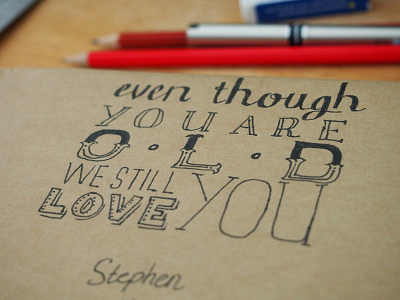 even though
YOU ARE
O·L·D
WE STILL
LOVE YOU
Stephen